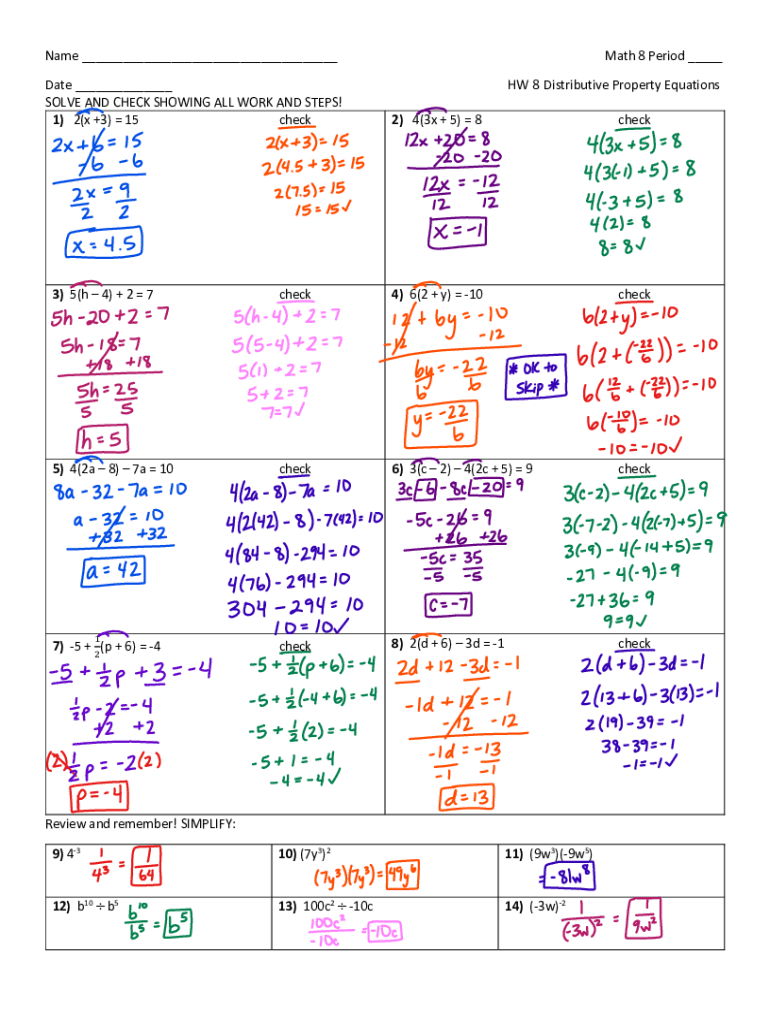 Name ____________________________________ Math 8 Period _____
Date ______________ HW 8 Distributive Property Equations
SOLVE AND CHECK SHOWING ALL WORK AND STEPS!
1) 2(x +3) = 15 check
2x + 6 = 15
-6 -6
2x = 9
2 2
x = 4.5
2(x+3) = 15
2(4.5 + 3) = 15
2(7.5) = 15
15 = 15✓
2) 4(3x + 5) = 8 check
12x +20 = 8
-20 -20
12x = -12
12 12
x = -1
4(3x+5) = 8
4(3(-1)+5) = 8
4(-3+5) = 8
4(2) = 8
8 = 8✓
3) 5(h – 4) + 2 = 7 check
5h -20 +2 = 7
5h -18 = 7
+18 +18
5h = 25
5 5
h = 5
5(h-4)+2 = 7
5(5-4)+2 = 7
5(1)+2 = 7
5+2 = 7
7=7✓
4) 6(2 + y) = -10 check
12 + 6y = -10
-12 -12
6y = -22
6 6
y = -22/6
* OK to
skip *
6(2+y) = -10
6(2+(-22/6)) = -10
6(12/6 + (-22/6)) = -10
6(-10/6) = -10
-10 = -10✓
5) 4(2a – 8) – 7a = 10 check
8a - 32 - 7a = 10
a - 32 = 10
+32 +32
a = 42
4(2a-8)-7a = 10
4(2(42)-8)-7(42) = 10
4(84-8)-294 = 10
4(76)-294 = 10
304 - 294 = 10
10 = 10✓
6) 3(c – 2) – 4(2c + 5) = 9 check
3c -6 -8c -20 = 9
-5c - 26 = 9
+26 +26
-5c = 35
-5 -5
c = -7
3(c-2)-4(2c+5) = 9
3(-7-2)-4(2(-7)+5) = 9
3(-9)-4(-14+5) = 9
-27 -4(-9) = 9
-27+36 = 9
9=9✓
7) -5 + ½(p + 6) = -4 check
-5 + ½p + 3 = -4
½p - 2 = -4
+2 +2
(2)½p = -2(2)
p = -4
-5 + ½(p+6) = -4
-5 + ½(-4+6) = -4
-5 + ½(2) = -4
-5 + 1 = -4
-4 = -4✓
8) 2(d + 6) – 3d = -1 check
2d +12 -3d = -1
-1d + 12 = -1
-12 -12
-1d = -13
-1 -1
d = 13
2(d+6)-3d = -1
2(13+6)-3(13) = -1
2(19)-39 = -1
38-39 = -1
-1 = -1✓
Review and remember! SIMPLIFY:
9) 4⁻³
1/4³ = 1/64
10) (7y³)²
(7y³)(7y³) = 49y⁶
11) (9w³)(-9w⁵)
= -81w⁸
12) b¹⁰ ÷ b⁵
b¹⁰/b⁵ = b⁵
13) 100c² ÷ -10c
100c²/-10c = -10c
14) (-3w)⁻²
1/(-3w)² = 1/9w²